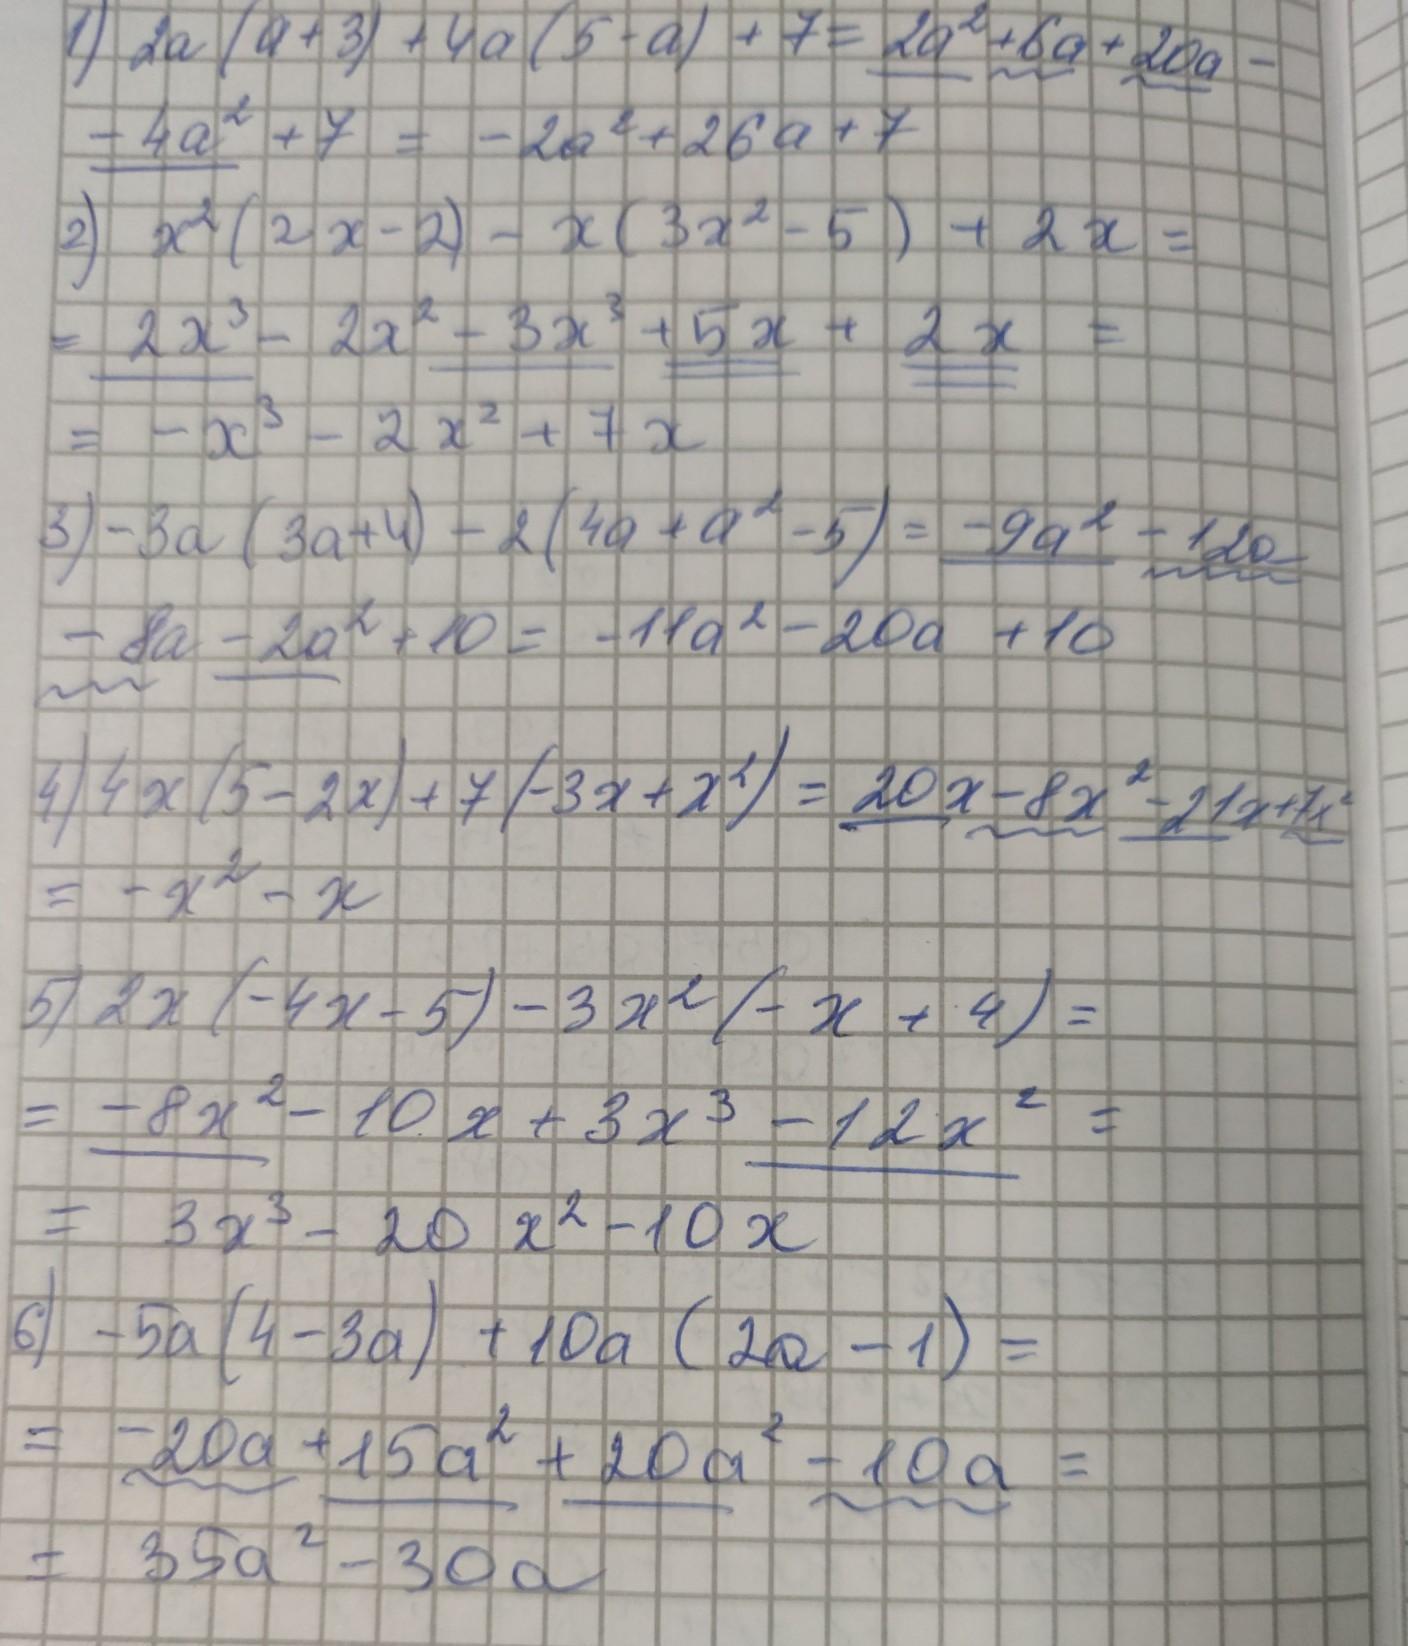 1) 2a(a+3)+4a(5-a)+7=2a²+6a+20a-
-4a²+7=-2a²+26a+7
2) x²(2x-2)-x(3x²-5)+2x=
=2x³-2x²-3x³+5x+2x=
=-x³-2x²+7x
3) -3a(3a+4)-2(4a+a²-5)=-9a²-12a
-8a-2a²+10=-11a²-20a+10
4) 4x(5-2x)+7(-3x+x²)=20x-8x²-21x+7x²
=-x²-x
5) 2x(-4x-5)-3x²(-x+4)=
=-8x²-10x+3x³-12x²=
=3x³-20x²-10x
6) -5a(4-3a)+10a(2a-1)=
=-20a+15a²+20a²-10a=
=35a²-30a